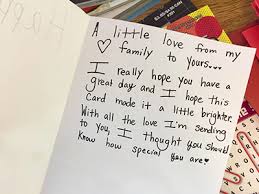 A little love from my
♡ family to yours...
I really hope you have a
great day and I hope this
Card made it a little brighter.
With all the love I'm sending
to you, I thought you should
know how special you are ♥